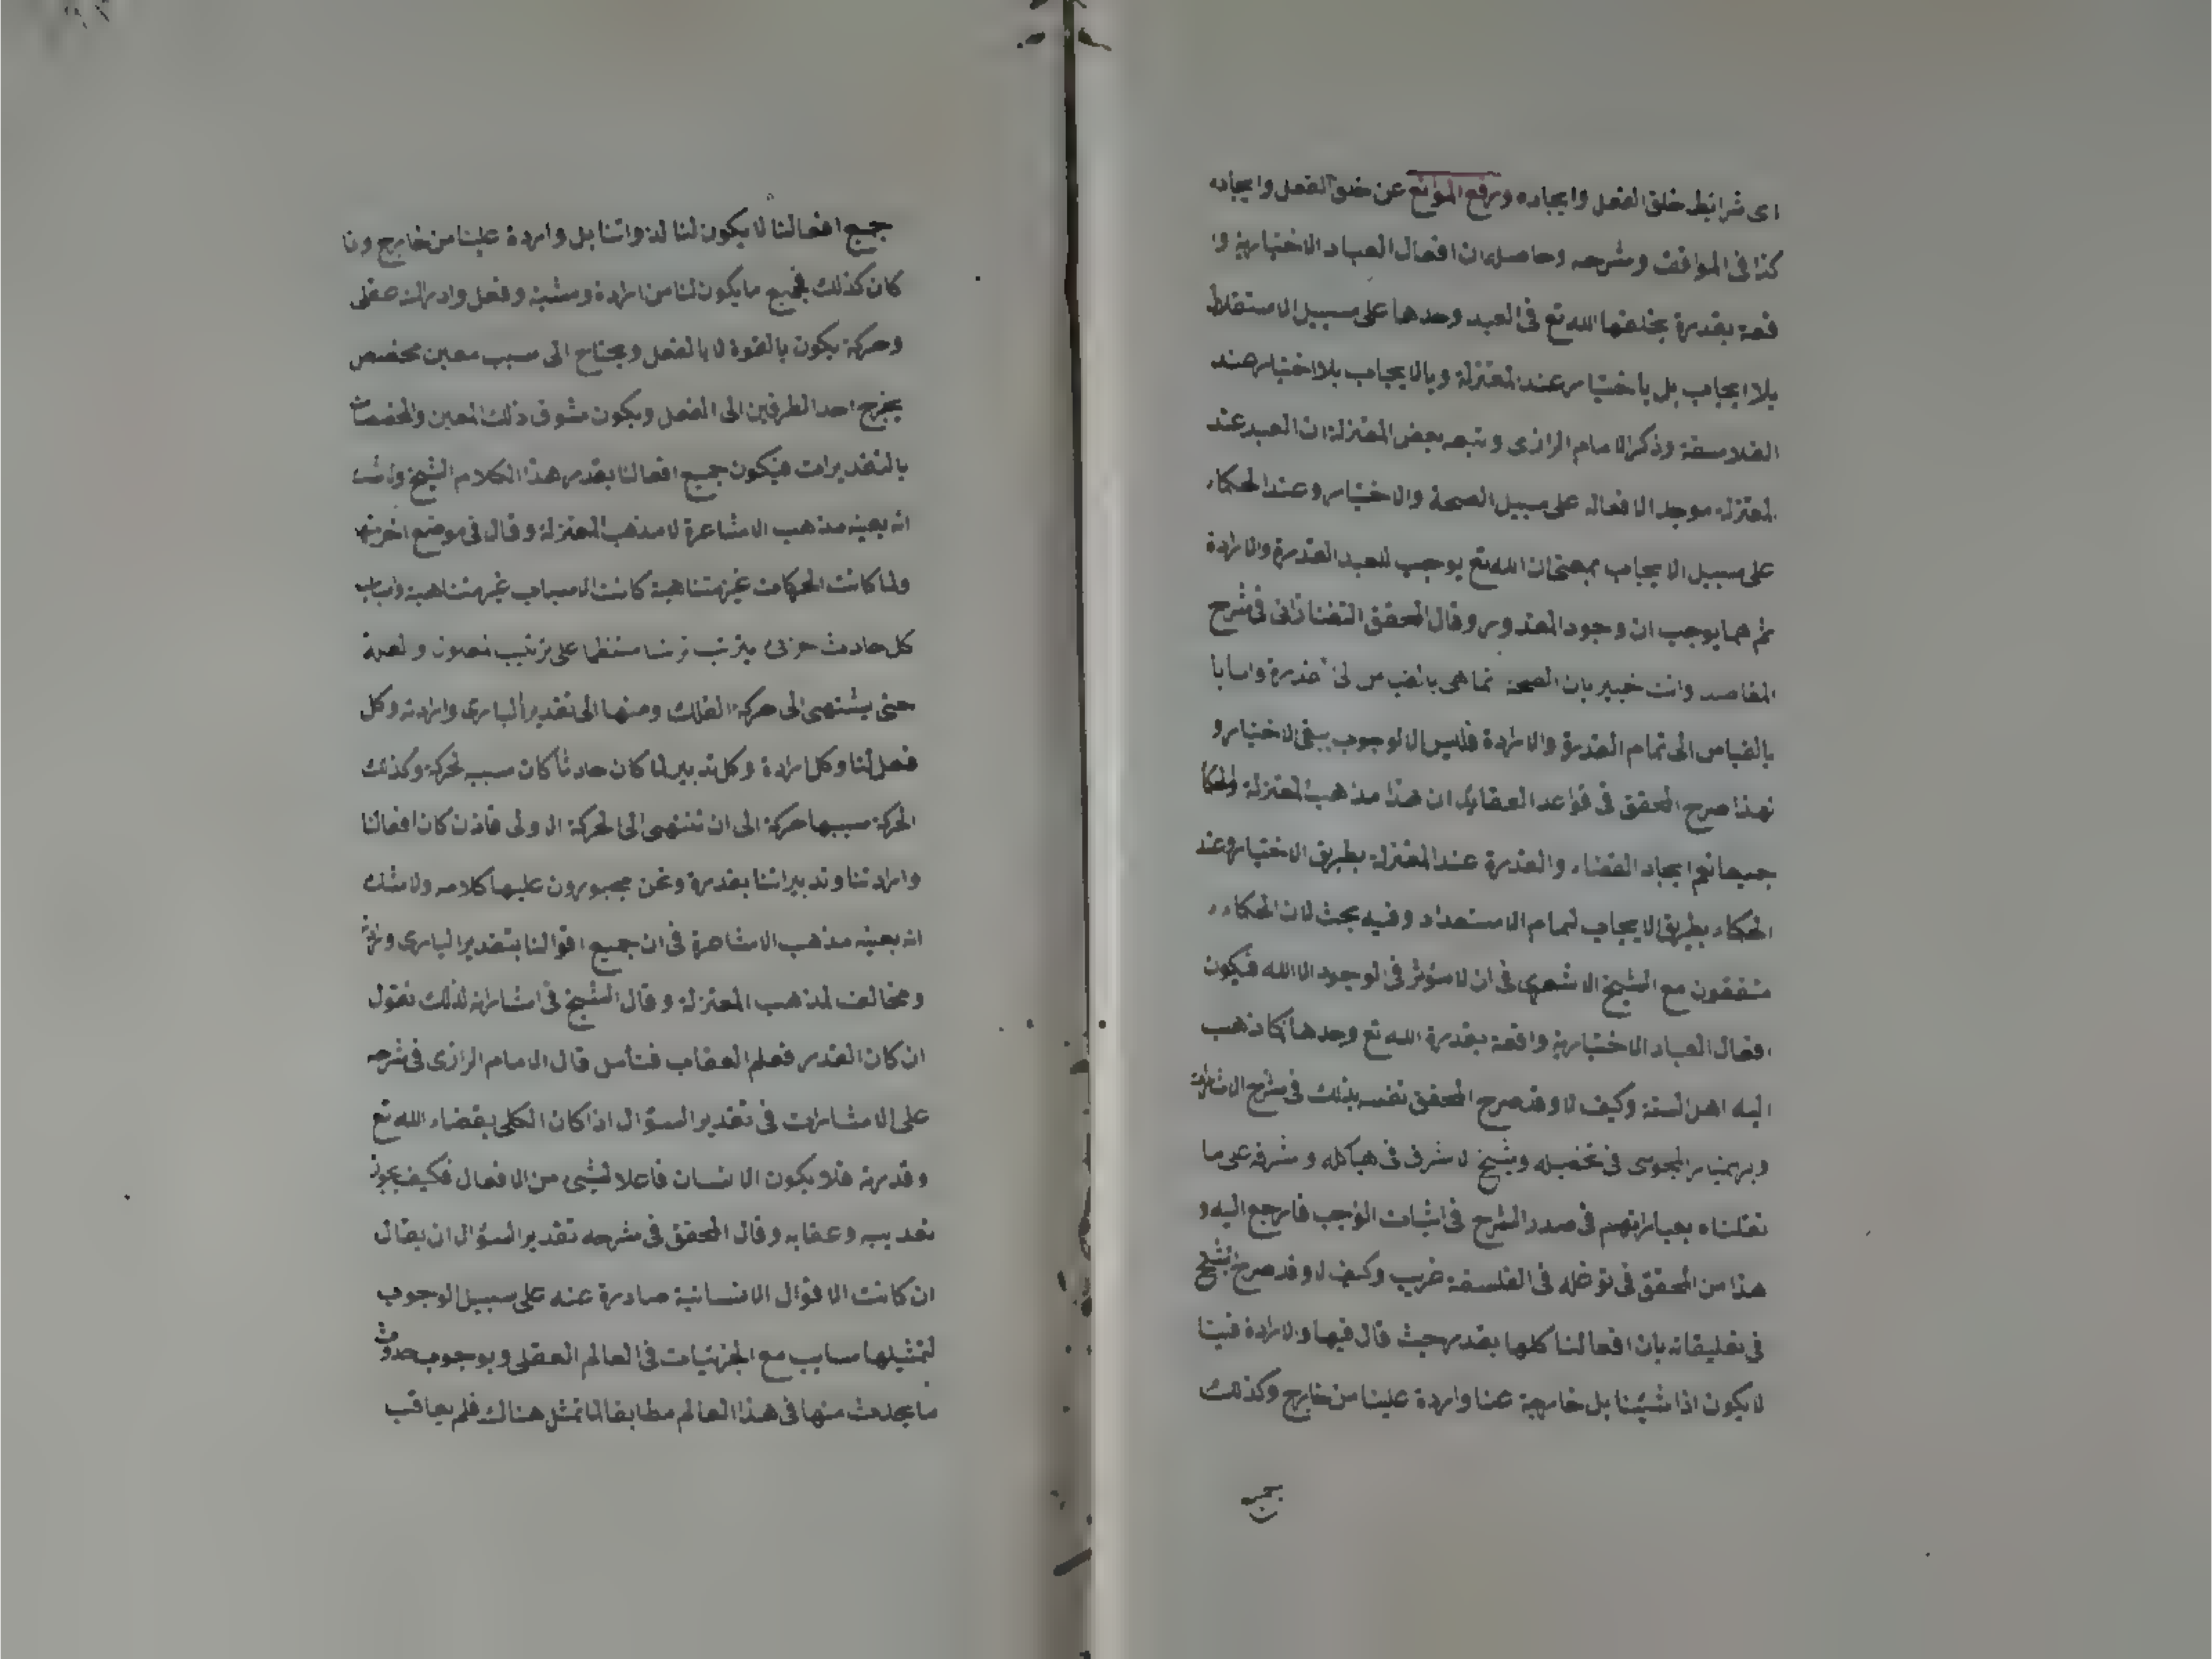 اى شرائط خلق الفعل وايجاده ورفع الموانع عن خلق الفعل وايجاده
كذا فى المواقف وشرحه وحاصله ان افعال العباد الاختيارية وا
قعة بقدرة يخلقها الله تع فى العبد وحدها على سبيل الاستقلال
بلا ايجاب بل باختيار عند المعتزلة وبالايجاب بلا اختيار عند
الفلاسفة وذكر الامام الرازى وتبعه بعض المعتزلة ان العبد عند
المعتزله موجد الافعاله على سبيل الصحة والاختيار وعند الحكماء
على سبيل الايجاب بمعنى ان الله تع يوجب للعبد القدرة والارادة
ثم هما يوجب ان وجود المقدور وقال المحقق التفتازانى فى شرح
المقاصد وانت خبير بان الصحة انما هى بالقياس الى القدرة واما با
بالقياس الى تمام القدرة والارادة فليس الا لوجوب يبقى الاختيار و
لهذا صرح المحقق فى قواعد العقايد ان هذا مذهب المعتزلة والحكا
جميعا نعم ايجاد القضاء والقدرة عند المعتزله بطريق الاختيار وعند
الحكماء بطريق الايجاب لتمام الاستعداد وفيه بحث لان الحكماء
متفقون مع الشيخ الاشعرى فى ان لا مؤثر فى الوجود الا الله فيكون
افعال العباد الاختيارية واقعة بقدرة الله تع وحدها كما ذهب
اليه اهل السنة وكيف لا وقد صرح المحقق نفسه بذلك فى شرح الاشارات
وبهمنيار المجوسى فى تحصيله وشيخ الاشراق فى هياكله وشرفه على ما
نقلناه بعباراتهم فى صدر الشرح فى اثبات الواجب فارجع اليه و
هذا من المحقق فى توغله فى الفلسفة غريب وكيف لا وقد صرح الشيخ
فى تعليقاته بان افعالنا كلها بقدر حيث قال فيها والارادة فينا
لا يكون اذا شيئنا بل خارجية عنا واردة علينا من خارج وكذلك
جميع
جميع افعالنا لا يكون لنا لذواتنا بل واردة علينا من خارج ولما
كان كذلك فجميع ما يكون لنا من ارادة ومشية وفعل وادراك عقلى
وحركة يكون بالقوة لا بالفعل ويحتاج الى سبب معين مخصص
يخرج احد الطرفين الى الفعل ويكون مشوق ذلك المعين والمخصصات
بالتقديرات فيكون جميع افعالنا بقدر هذا الكلام الشيخ ولا شك
انه بعينه مذهب الاشاعرة لا مذهب المعتزلة وقال فى موضع اخر منها
ولما كانت الحركات غير متناهية كانت الاسباب غير متناهية واسباب
كل حادث جزئى يترتب ترتبا منتظما على ترتيب
حتى ينتهى الى حركة الفلك ومنها الى تقدير البارى وارادته وكل
فعل لنا وكل ارادة وكل تدبير لما كان حادثا كان سببه الحركة وكذلك
الحركة سببها حركة الى ان تنتهى الى الحركة الاولى فاذن كان افعالنا
وارادتنا وتدبيراتنا بقدرة ونحن مجبورون عليها كلامه ولا شك
انه بعينه مذهب الاشاعرة فى ان جميع اقوالنا بتقدير البارى
ومخالف لمذهب المعتزلة وقال الشيخ فى اشاراته لذلك تقول
ان كان القدر فعلم العقاب فتأمل قال الامام الرازى فى شرحه
على الاشارات فى تقدير السؤال اذا كان الكلى بقضاء الله تع
وقدرته فلا يكون الانسان فاعلا لشيئ من الافعال فكيف يجوز
تعذيبه وعقابه وقال المحقق فى شرحه تقدير السؤال ان يقال
ان كانت الاقوال الانسانية صادرة عنه على سبيل الوجوب
لتمثيلها سايب مع الجزئيات فى العالم العقلى وبوجوب حدوث
ما يحدث منها فى هذا العالم مطابقا لما تمثل هناك فلم يعاقب